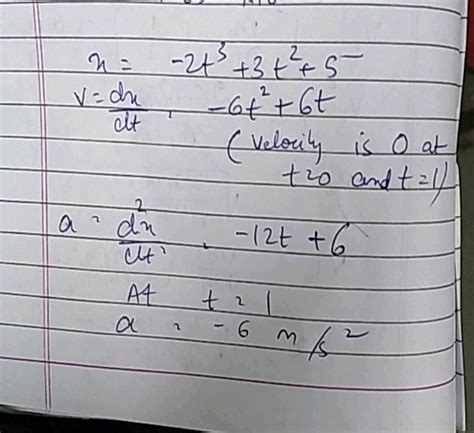 x = -2t³ + 3t² + 5
v = dx/dt = -6t² + 6t
(velocity is 0 at
t=0 and t=1)
a = d²x/dt² = -12t + 6
At t = 1
a = -6 m/s²